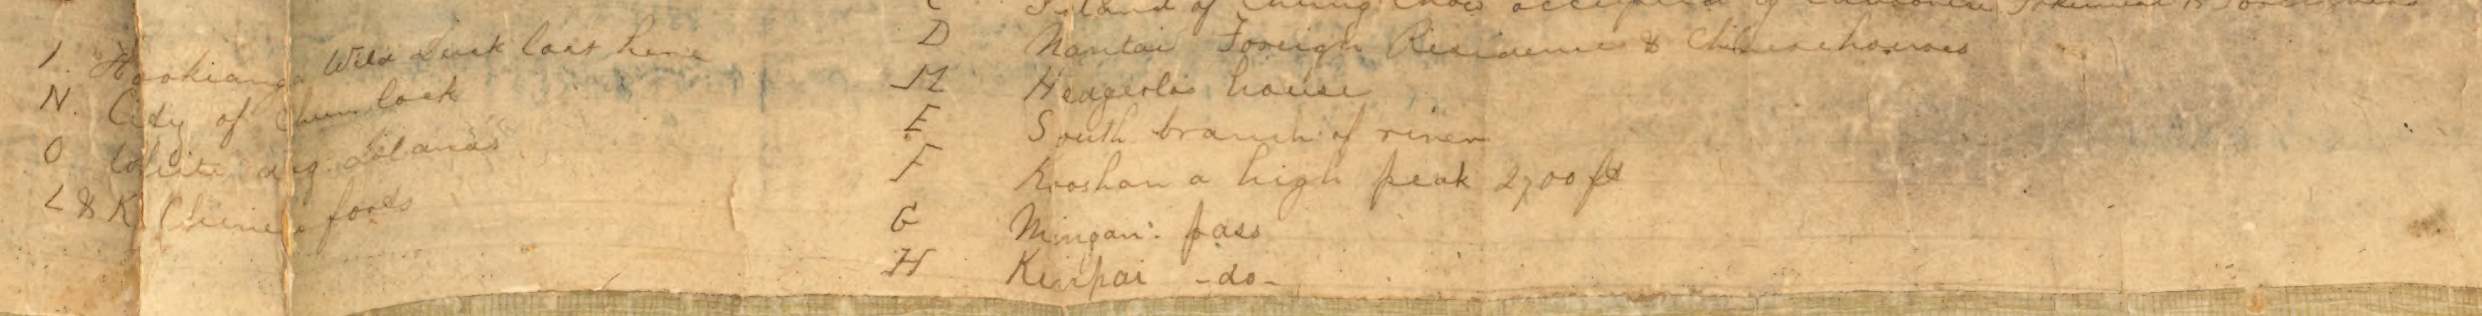 I. Hookianga Wild Duck lost here
N. City of Chunlock
O White dog Islands
L & K Chinese forts
C Island of Chung Chow occupied by
D Nantai Foreign Residences & Chinese houses
M Hedgerlos house
E South branch of river
F Kooshan a high peak 2700 ft
G Mingan: pass
H Kinpai -do-